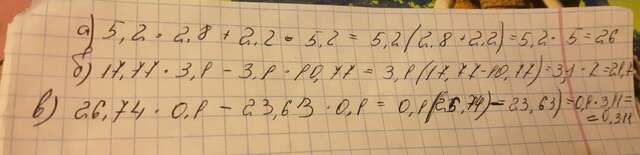 а) 5,2 · 2,8 + 2,2 · 5,2 = 5,2(2,8+2,2)=5,2·5=26
б) 17,77 · 3,1 - 3,1 · 10,77 = 3,1(17,77-10,77)=3,1·7=21,7
в) 26,74 · 0,1 - 23,63 · 0,1 = 0,1(26,74)-23,63)=0,1·3,11=
=0,311